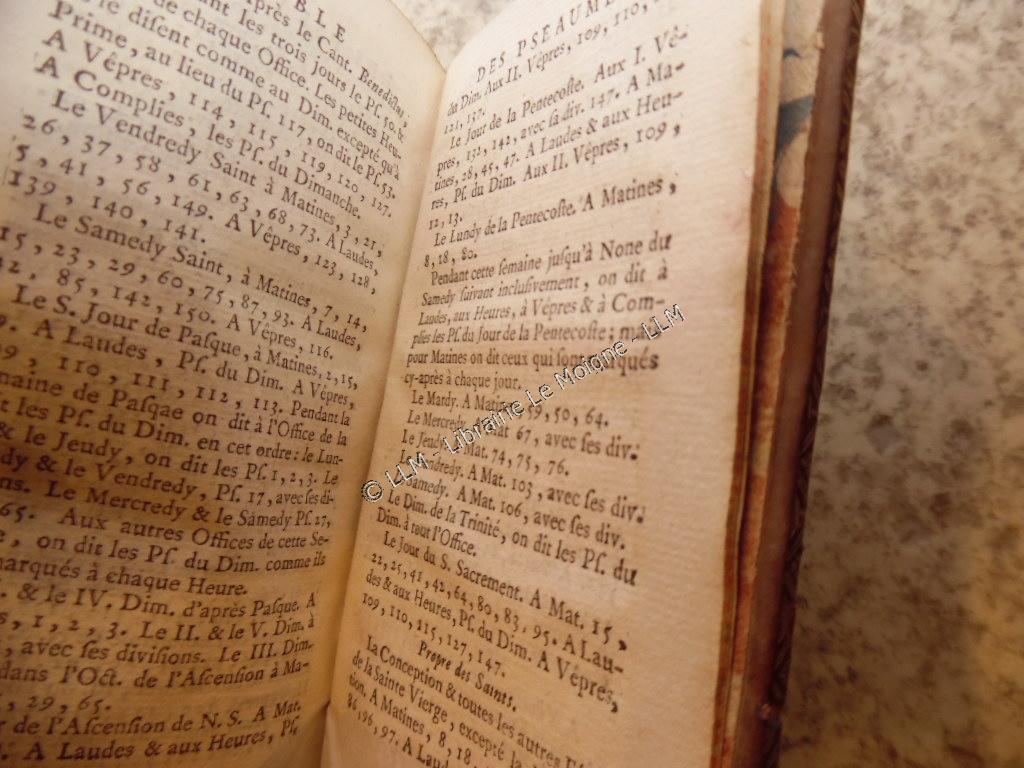 BLE
après le Cant. Benedictus,
nt les trois jours le Pf. 50. &
de chaque Office. Les petites Heu-
le difent comme au Dim. excepté qu'à
Prime, au lieu du Pf. 117, on dit le Pf. 53.
A Vêpres, 114, 115, 119, 120, 127.
A Complies, les Pf. du Dimanche.
Le Vendredy Saint à Matines, 3, 21,
26, 37, 58, 61, 63, 68, 73. A Laudes,
5, 41, 56, 149. A Vêpres, 123, 128,
139, 140, 141.
Le Samedy Saint, à Matines, 7, 14,
15, 23, 29, 60, 75, 87, 93. A Laudes,
42, 85, 142, 150. A Vêpres, 116.
Le S. Jour de Pafque, à Matines, 2, 15,
A Laudes, Pf. du Dim. A Vêpres,
110, 111, 112, 113. Pendant la
maine de Pafqae on dit à l'Office de la
les Pf. du Dim. en cet ordre: le Lun-
& le Jeudy, on dit les Pf. 1, 2, 3. Le
dy & le Vendredy, Pf. 17, avec fes di-
ns. Le Mercredy & le Samedy Pf. 27,
65. Aux autres Offices de cette Se-
, on dit les Pf. du Dim. comme ils
marqués à chaque Heure.
. & le IV. Dim. d'après Pafque. A
, 1, 2, 3. Le II. & le V. Dim. à
, avec fes divifions. Le III. Dim.
dans l'Oct. de l'Afcenfion à Ma-
, 29, 65.
de l'Afcenfion de N. S. A Mat.
. A Laudes & aux Heures, Pf.
DES PSEAUME
du Dim. Aux II. Vêpres, 109, 110,
121, 137.
Le Jour de la Pentecofte. Aux I. Vê-
pres, 132, 142, avec fa div. 147. A Ma-
tines, 28, 45, 47. A Laudes & aux Heu-
res, Pf. du Dim. Aux II. Vêpres, 109,
12, 13.
Le Lundy de la Pentecofte. A Matines,
8, 18, 80.
Pendant cette femaine jufqu'à None du
Samedy fuivant inclufivement, on dit à
Laudes, aux Heures, à Vêpres & à Com-
plies les Pf. du Jour de la Pentecofte; mais
pour Matines on dit ceux qui font marqués
cy-après à chaque jour.
Le Mardy. A Matines 59, 50, 64.
Le Mercredy. A Mat 67, avec fes div.
Le Jeudy. A Mat. 74, 75, 76.
Le Vendredy. A Mat. 103, avec fes div.
Le Samedy. A Mat. 106, avec fes div.
Le Dim. de la Trinité, on dit les Pf. du
Dim. à tout l'Office.
Le Jour du S. Sacrement. A Mat. 15,
22, 25, 41, 42, 64, 80, 83, 95. A Lau-
des & aux Heures, Pf. du Dim. A Vêpres,
109, 110, 115, 127, 147.
Propre des Saints.
La Conception & toutes les autres
de la Sainte Vierge, excepté la
tion. A Matines, 8, 18
86, 96, 97. A Laud
© LLM - Librairie Le Moigne - LLM